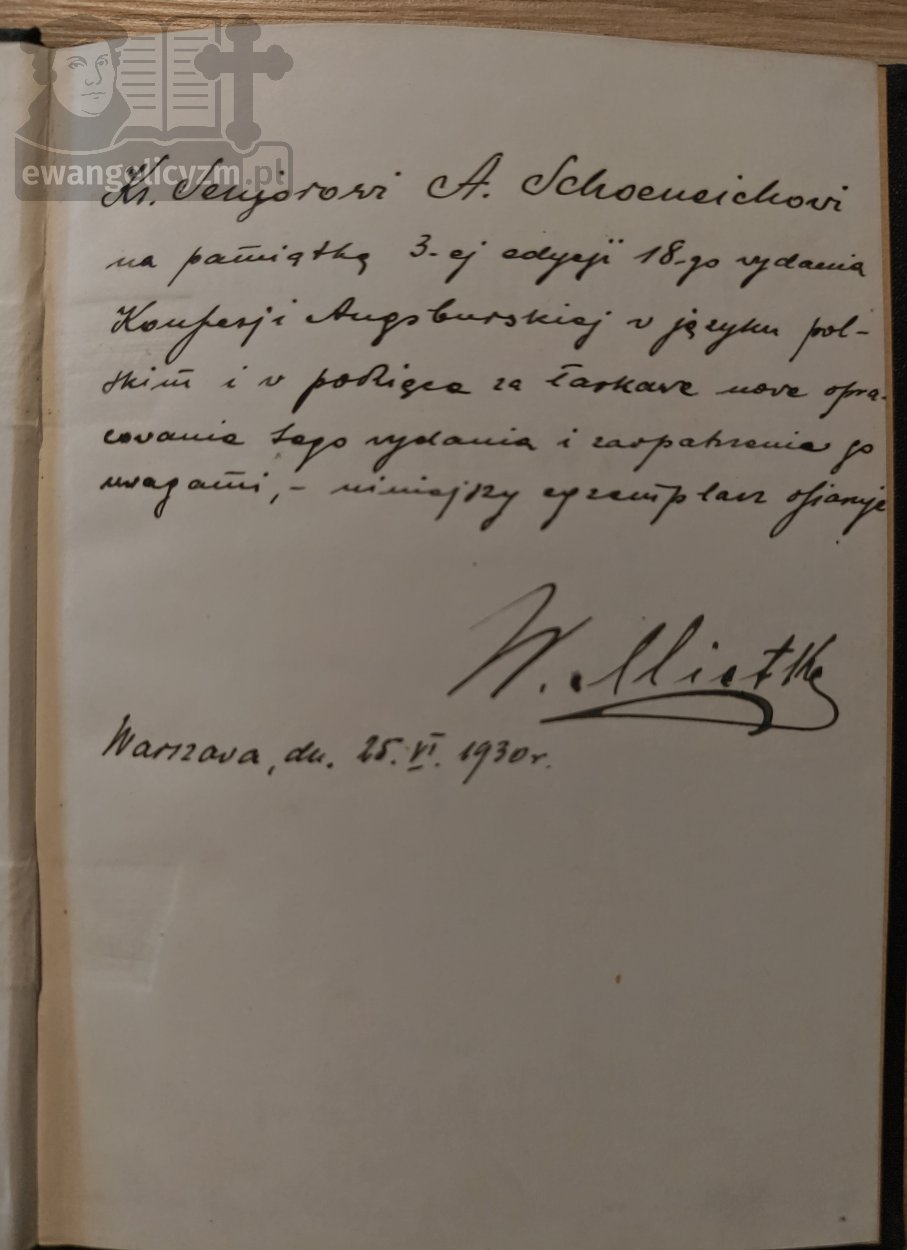 ewangelicyzm.pl
Ks. Senjorowi A. Schoeneichowi
na pamiątkę 3-ej edycji 18-go wydania
Konfesji Augsburskiej w języku pol-
skim i w podzięce za łaskawe nowe opra-
cowanie tego wydania i zaopatrzenie go
uwagami, - niniejszy egzemplarz ofiaruje
W. Mietke
Warszawa, dn. 25. VI. 1930 r.